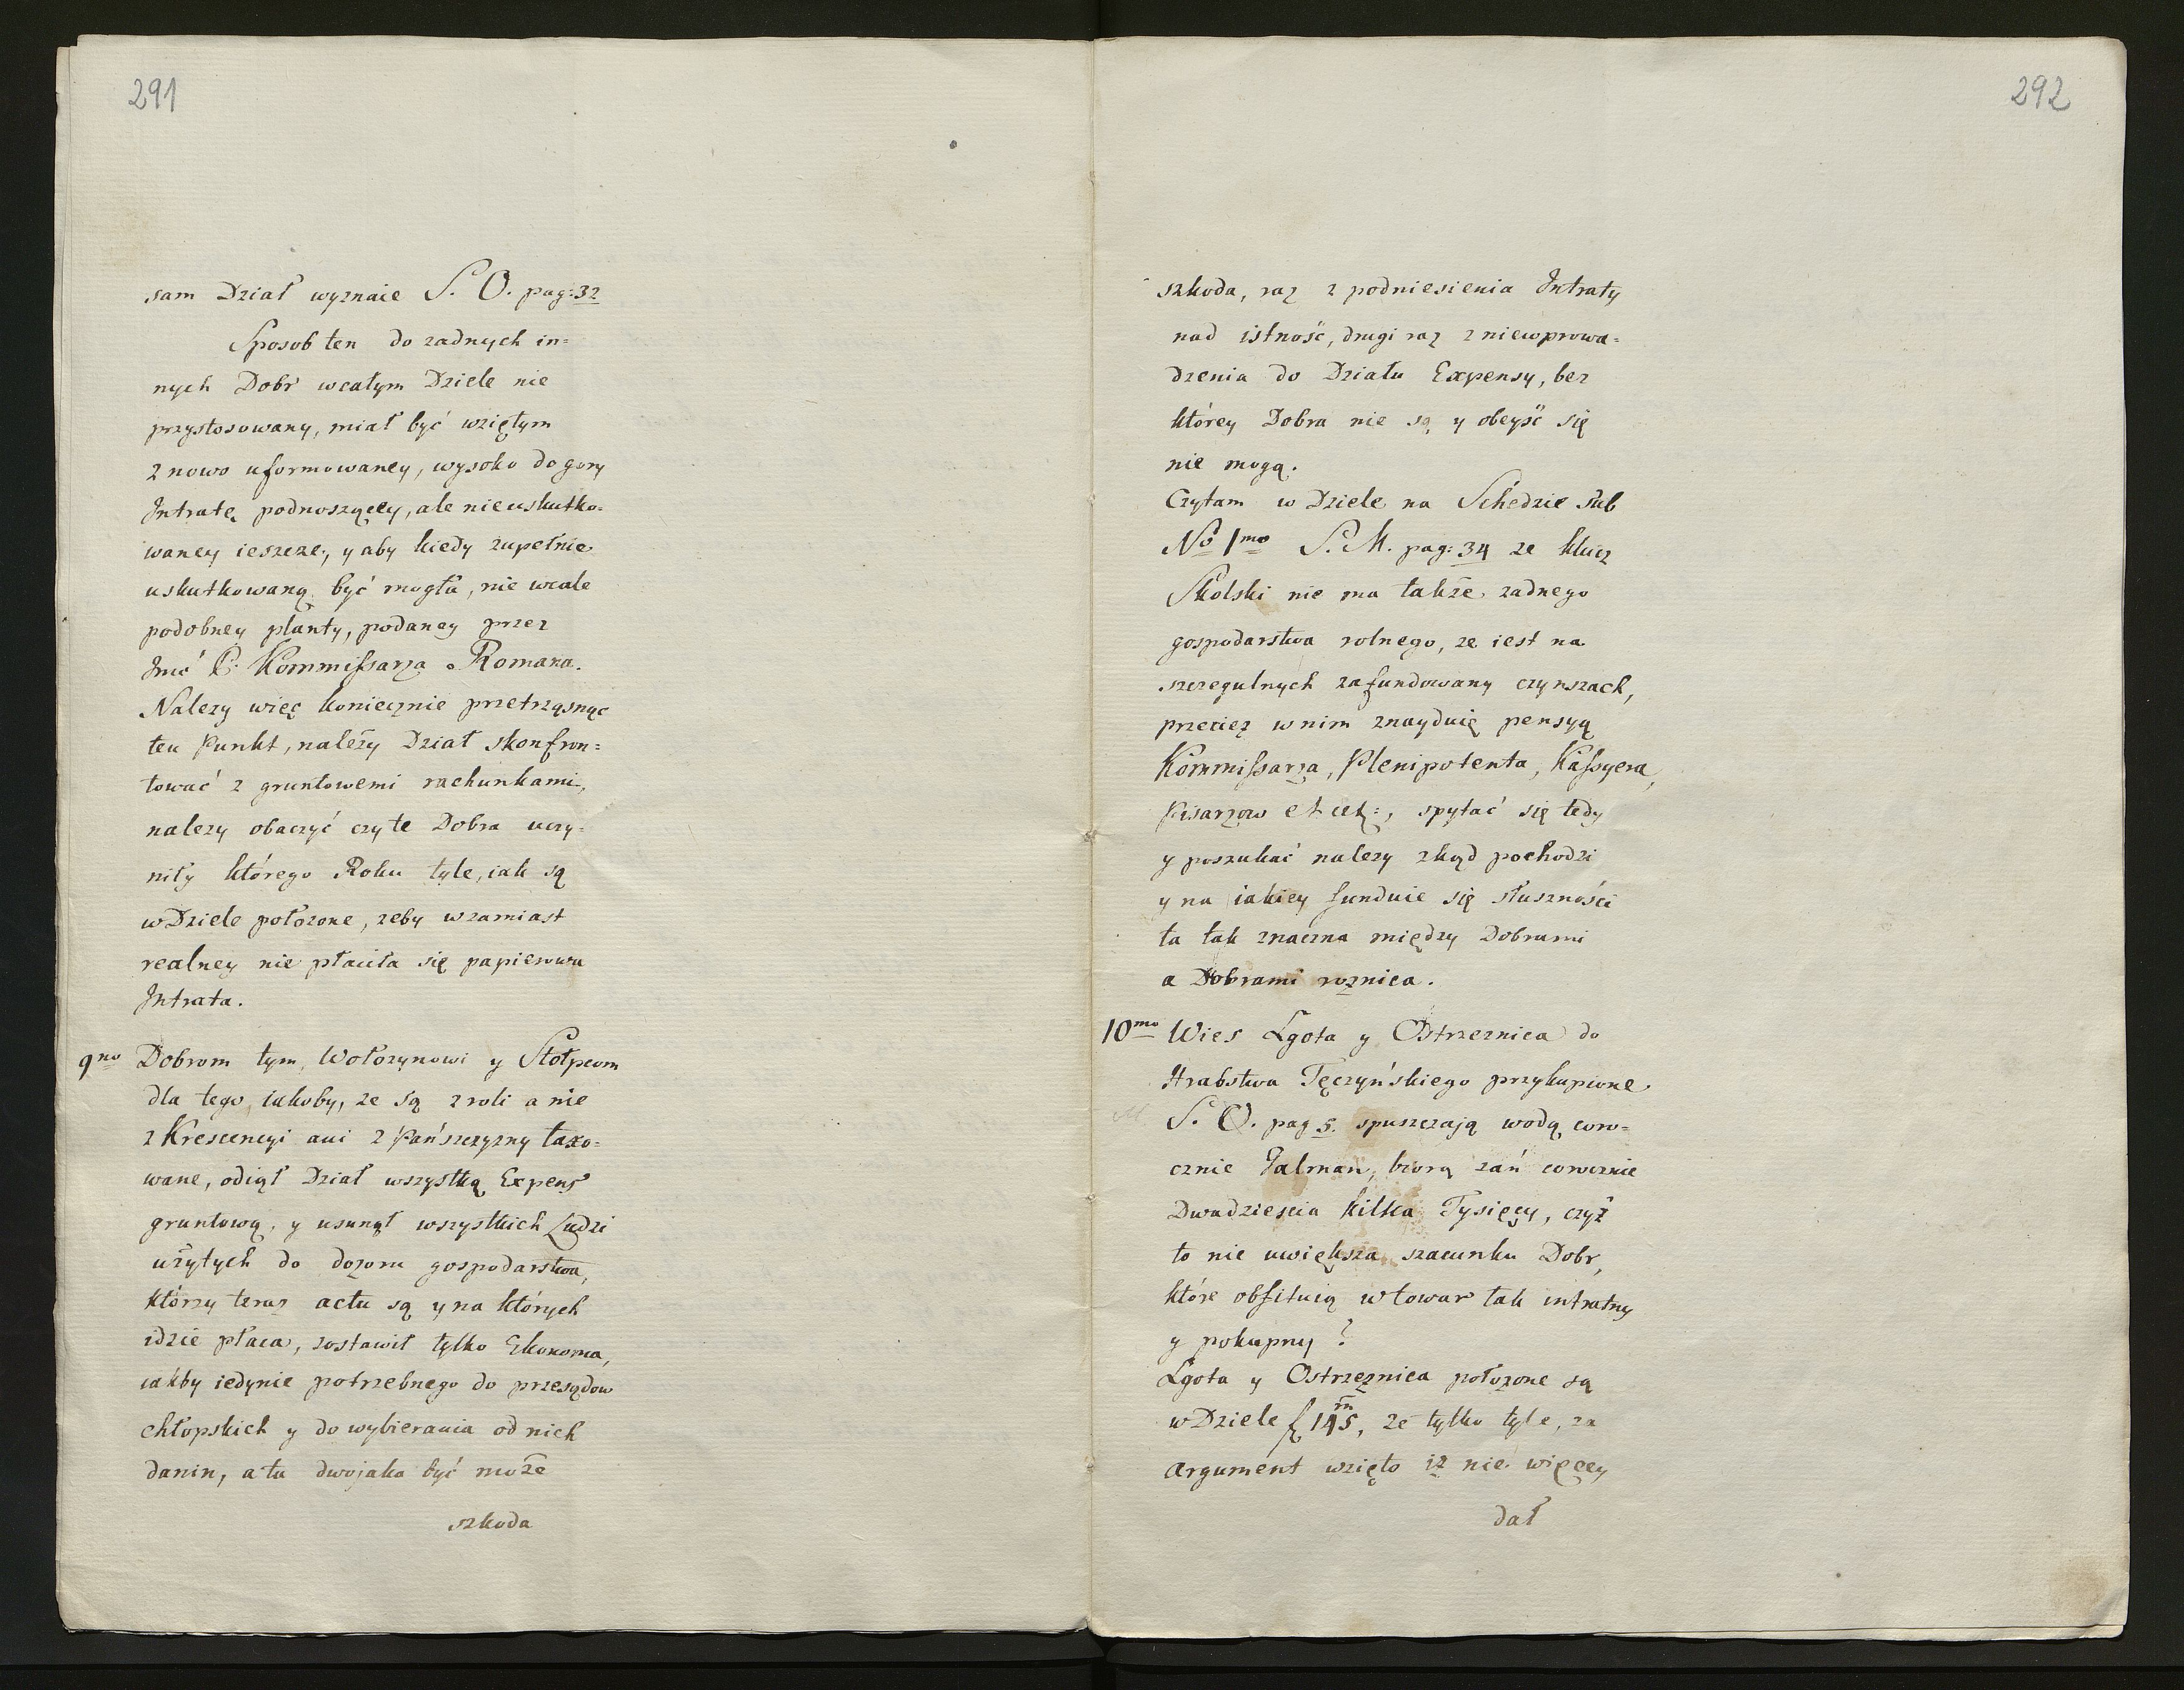 291
sam Dział wyznaie S. O. pag: 32
Sposob ten do zadnych in=
nych Dobr wcałym Dziele nie
przystosowany, miał być wziętym
z nowo uformowaney, wysoko do gory
Intratę podnoszącey, ale nieuskutko=
waney ieszcze, y aby kiedy zupełnie
uskutkowaną być mogła, nie wcale
podobney planty, podaney przez
Jmć P. Kommissarza Romana.
Nalezy więc koniecznie przetrząsnąc
ten Punkt, należy Dział skonfron=
tować z gruntowemi rachunkami,
nalezy obaczyć czy te Dobra uczy=
niły którego Roku tyle, iak są
w Dziele połozone, zeby wzamiast
realney nie płaciła się papierowa
Intrata.
9no Dobrom tym, Wołozynowi y Stołpcom
dla tego, iakoby, ze są z roli a nie
z Krescencyi ani z Pańszczyzny taxo=
wane, odiął Dział wszystką Expens
gruntową, y usunął wszystkich Ludzi
użytych do dozoru gospodarstwa,
którzy teraz actu są y na których
idzie płaca, zostawił tylko Ekonoma,
iakby iedynie potrzebnego do przesądow
chłopskich y do wybierania od nich
danin, a tu dwojaka być może
szkoda
292
szkoda, raz z podniesienia Intraty
nad istność, drugi raz z niewprowa=
dzenia do Działu Expensy, bez
którey Dobra nie są y obeyść się
nie mogą.
Czytam w Dziele na Schedzie sub
No 1mo S. M. pag: 34 ze klucz
Skolski nie ma także zadnego
gospodarstwa rolnego, ze iest na
szczegulnych zafundowany czynszach,
przeciez w nim znayduię pensyą
Kommissarza, Plenipotenta, Kassyera,
Pisarzow et cet:, spytać się tedy
y poszukać nalezy zkąd pochodzi
y na iakiey funduie się słuszności
ta tak znaczna między Dobrami
a Dobrami roznica.
10mo Wies Lgota y Ostrzeznica do
Hrabstwa Tęczyńskiego przykupione
S. O. pag 5. spuszczają wodą coro=
cznie Galman, biorą zań corocznie
Dwadziescia kilka Tysięcy, czyż
to nie uwiększa szacunku Dobr,
które obfituią w towar tak intratny
y pokupny?
Lgota y Ostrzeznica połozone są
w Dziele f 145, ze tylko tyle, za
argument wzięto iz nie więcey
dał